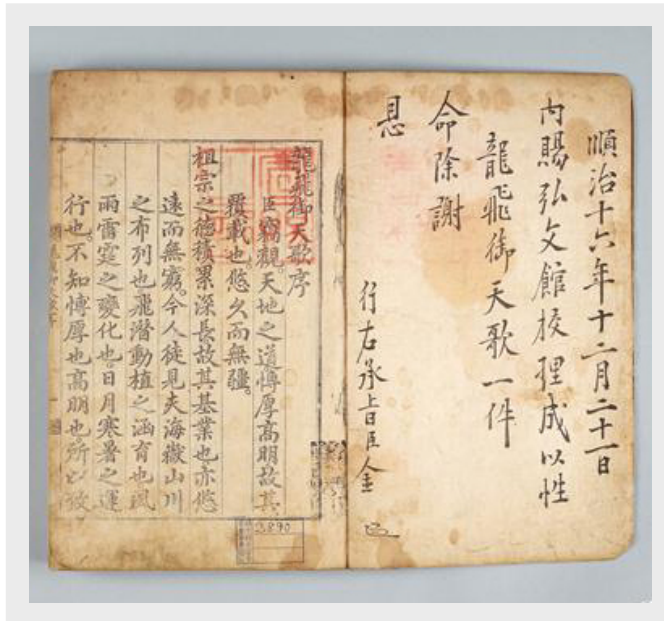 順治十六年十二月二十一日
內賜弘文館校理成以性
龍飛御天歌一件
命除謝
恩
行右承旨臣金
龍飛御天歌序
臣竊觀天地之道博厚高明故其
覆載也悠久而無疆
祖宗之德積累深長故其基業也亦悠
遠而無窮今人徒見夫海嶽山川
之布列也飛潛動植之涵育也風
雨雷霆之變化也日月寒暑之運
行也不知博厚也高明也所以致
3890